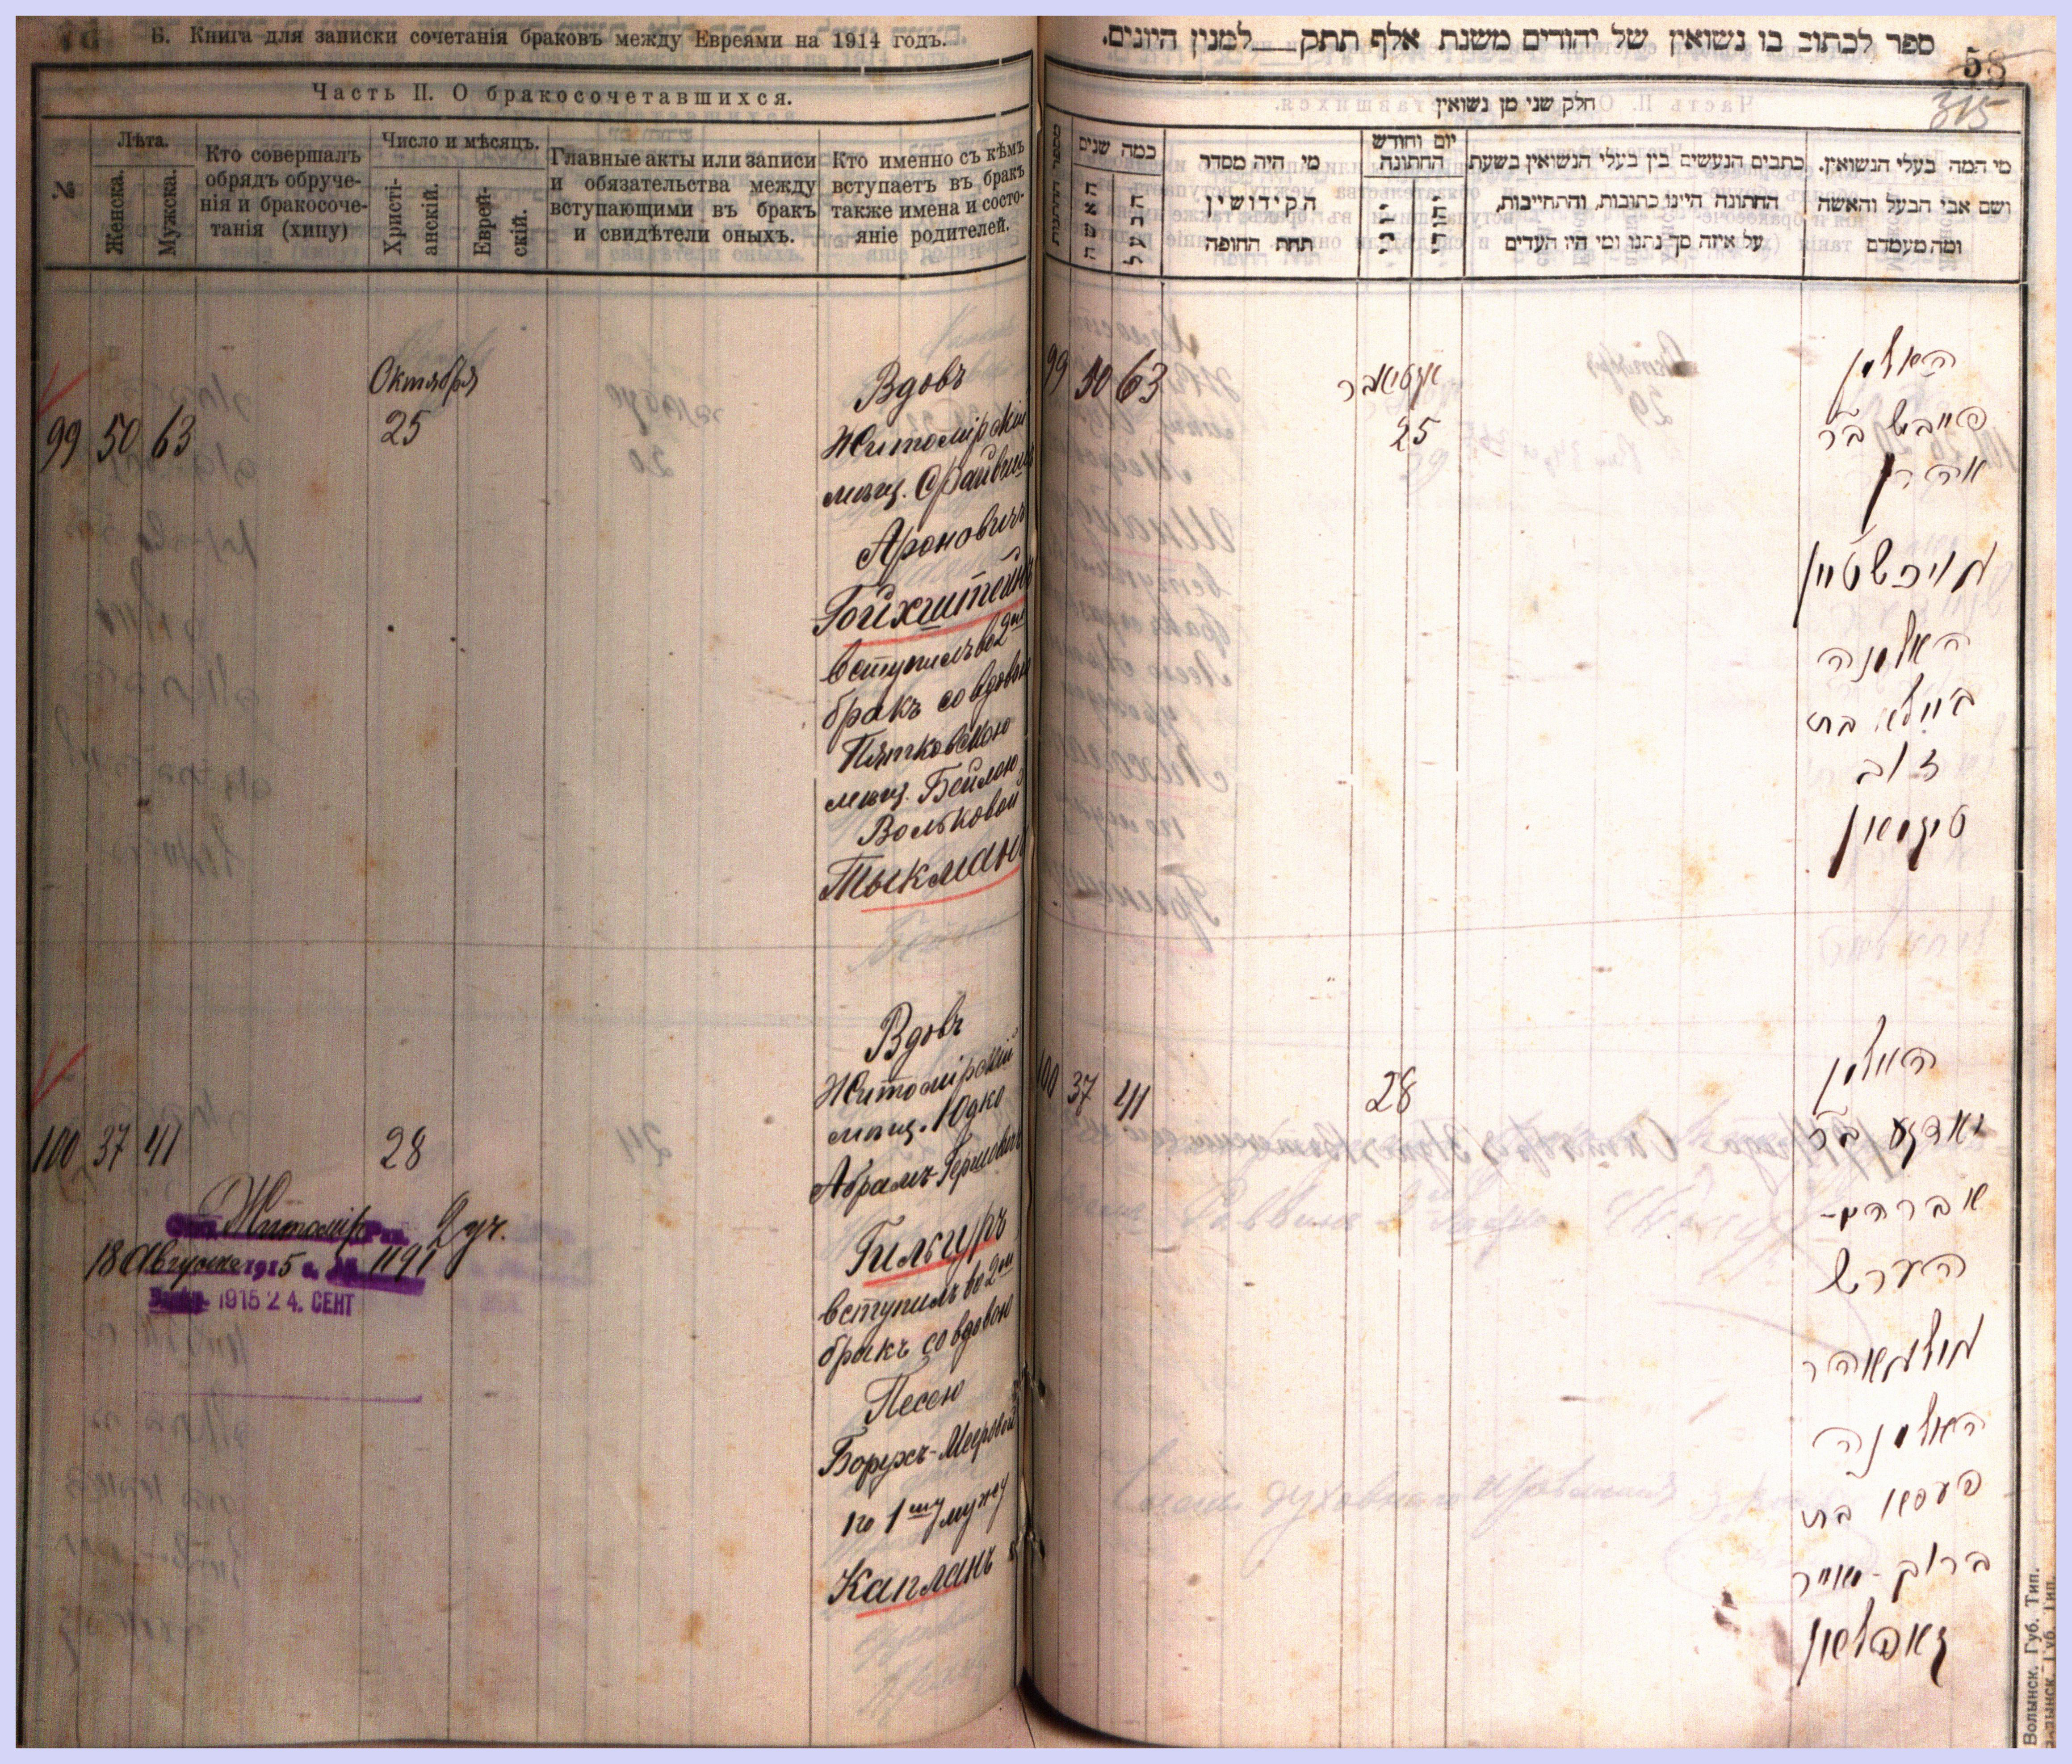 Б. Книга для записки сочетанія браковъ между Евреями на 1914 годъ.
Часть II. О бракосочетавшихся.
№
Лѣта.
Женска.
Мужска.
Кто совершалъ
обрядъ обруче-
нія и бракосоче-
танія (хипу)
Число и мѣсяцъ.
Христі-
анскій.
Еврей-
скій.
Главные акты или записи
и обязательства между
вступающими въ бракъ
и свидѣтели оныхъ.
Кто именно съ кѣмъ
вступаетъ въ бракъ
также имена и состо-
яніе родителей.
Октября
99 50 63 25
Вдовъ
Житомірскій
мѣщ. Файвишъ
Ароновичъ
Гойхштейнъ
вступилъ во 2ой
бракъ со вдовою
Пятковскою
мѣщ. Бейлою
Вольковой
Тыкманъ
100 37 41 28
Вдовъ
Житомірскій
мѣщ. Юдко
Абрамъ-Гершовичъ
Гильгуръ
вступилъ во 2ой
бракъ со вдовою
Песею
Борухъ-Мееровой
по 1му мужу
Капланъ
Житомір 2 уч.
18 Августа 1915 г. 1191
1915 24. СЕНТ
ספר לכתוב בו נשואין של יהודים משנת אלף תתק למנין היונים.
58
315
חלק שני מן נשואין
מספר החתונות
כמה שנים
האשה
הבעל
מי היה מסדר
הקידושין
תחת החופה
יום וחודש
החתונה
יוני
יהודי
כתבים הנעשים בין בעלי הנשואין בשעת
החתונה היינו כתובות, והתחייבות,
על איזה סך נתנו ומי היו העדים
מי המה בעלי הנשואין.
ושם אבי הבעל והאשה
ומה מעמדם
99 50 63
אקטיאבר
25
האלמן
פייבש בר
אהרן
גויכשטיין
האלמנה
ביילא בת
זאב
טיקמאן
100 37 41
28
האלמן
יאדקע בר
אברהם-
הערש
האלמנה
פעסיא בת
ברוך-מאיר
קאפלאן
Волынск. Губ. Тип.